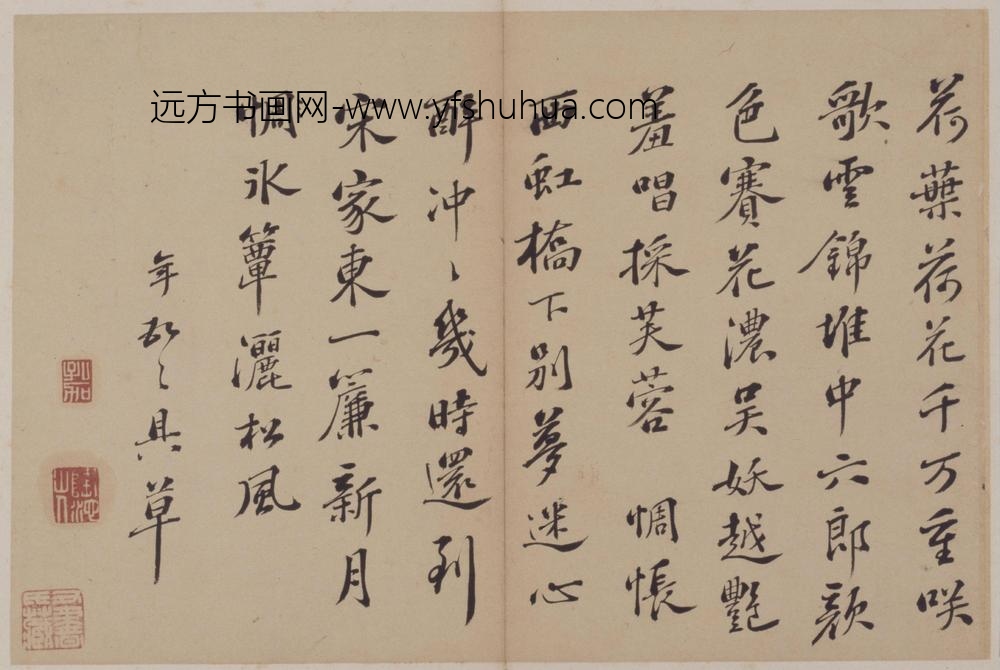 荷葉荷花千万重咲
歌雲錦堆中六郎顔
色賽花濃吴妖越艷
羞唱採芙蓉 惆悵
西虹橋下别夢迷心
醉冲〻幾時還到
宋家東一簾新月
惆氷簟灑松風
年 〻具草
远方书画网-www.yfshuhua.com